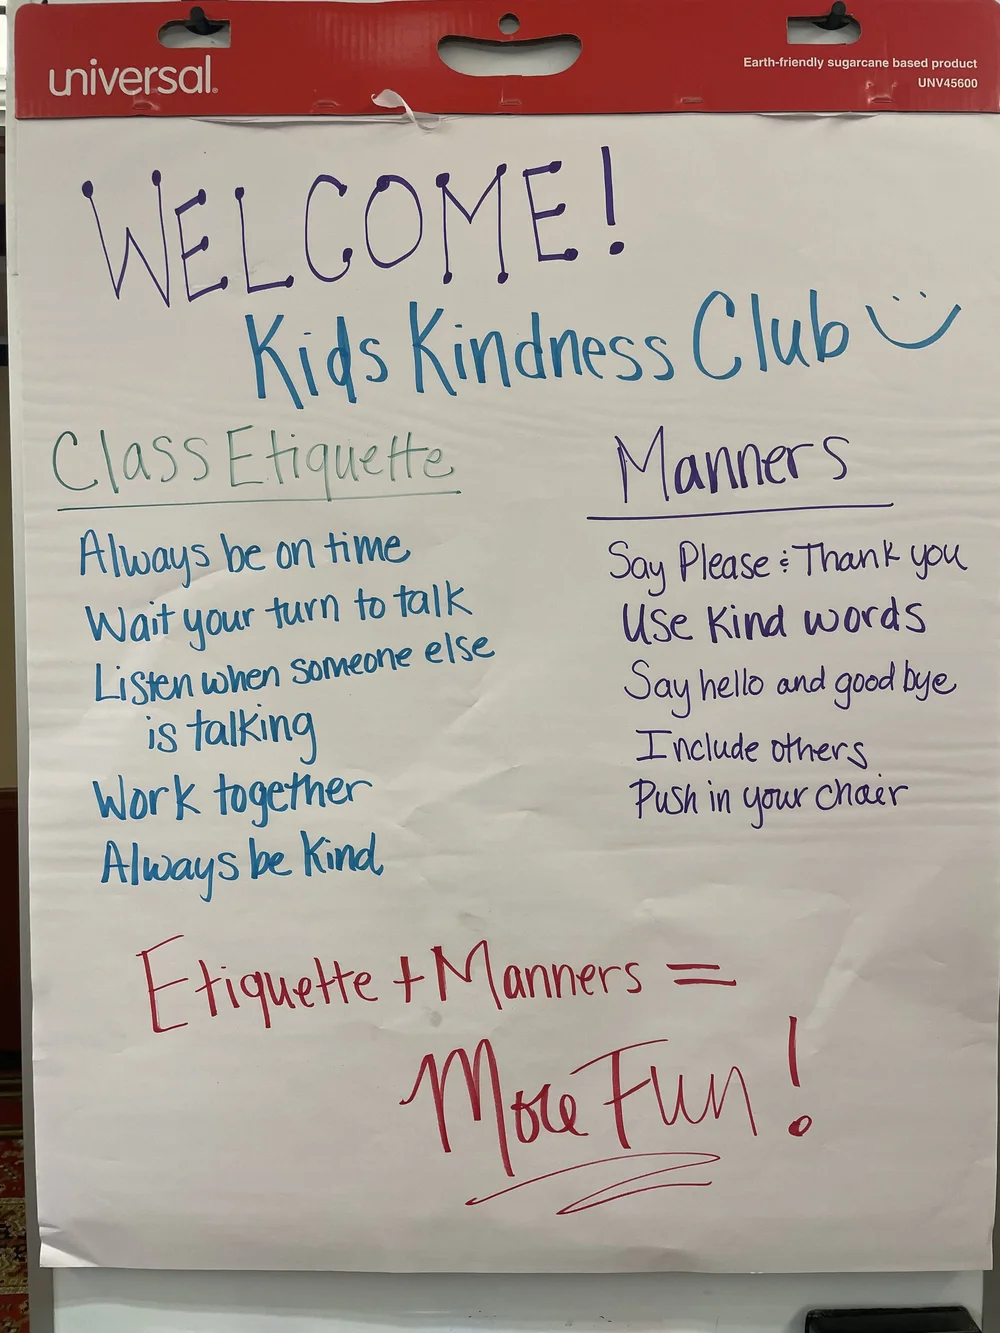 universal.
Earth-friendly sugarcane based product
UNV45600
WELCOME!
Kids Kindness Club
Class Etiquette
Always be on time
Wait your turn to talk
Listen when someone else
is talking
Work together
Always be Kind
Manners
Say Please & Thank you
Use Kind words
Say hello and good bye
Include others
Push in your chair
Etiquette + Manners =
More Fun!